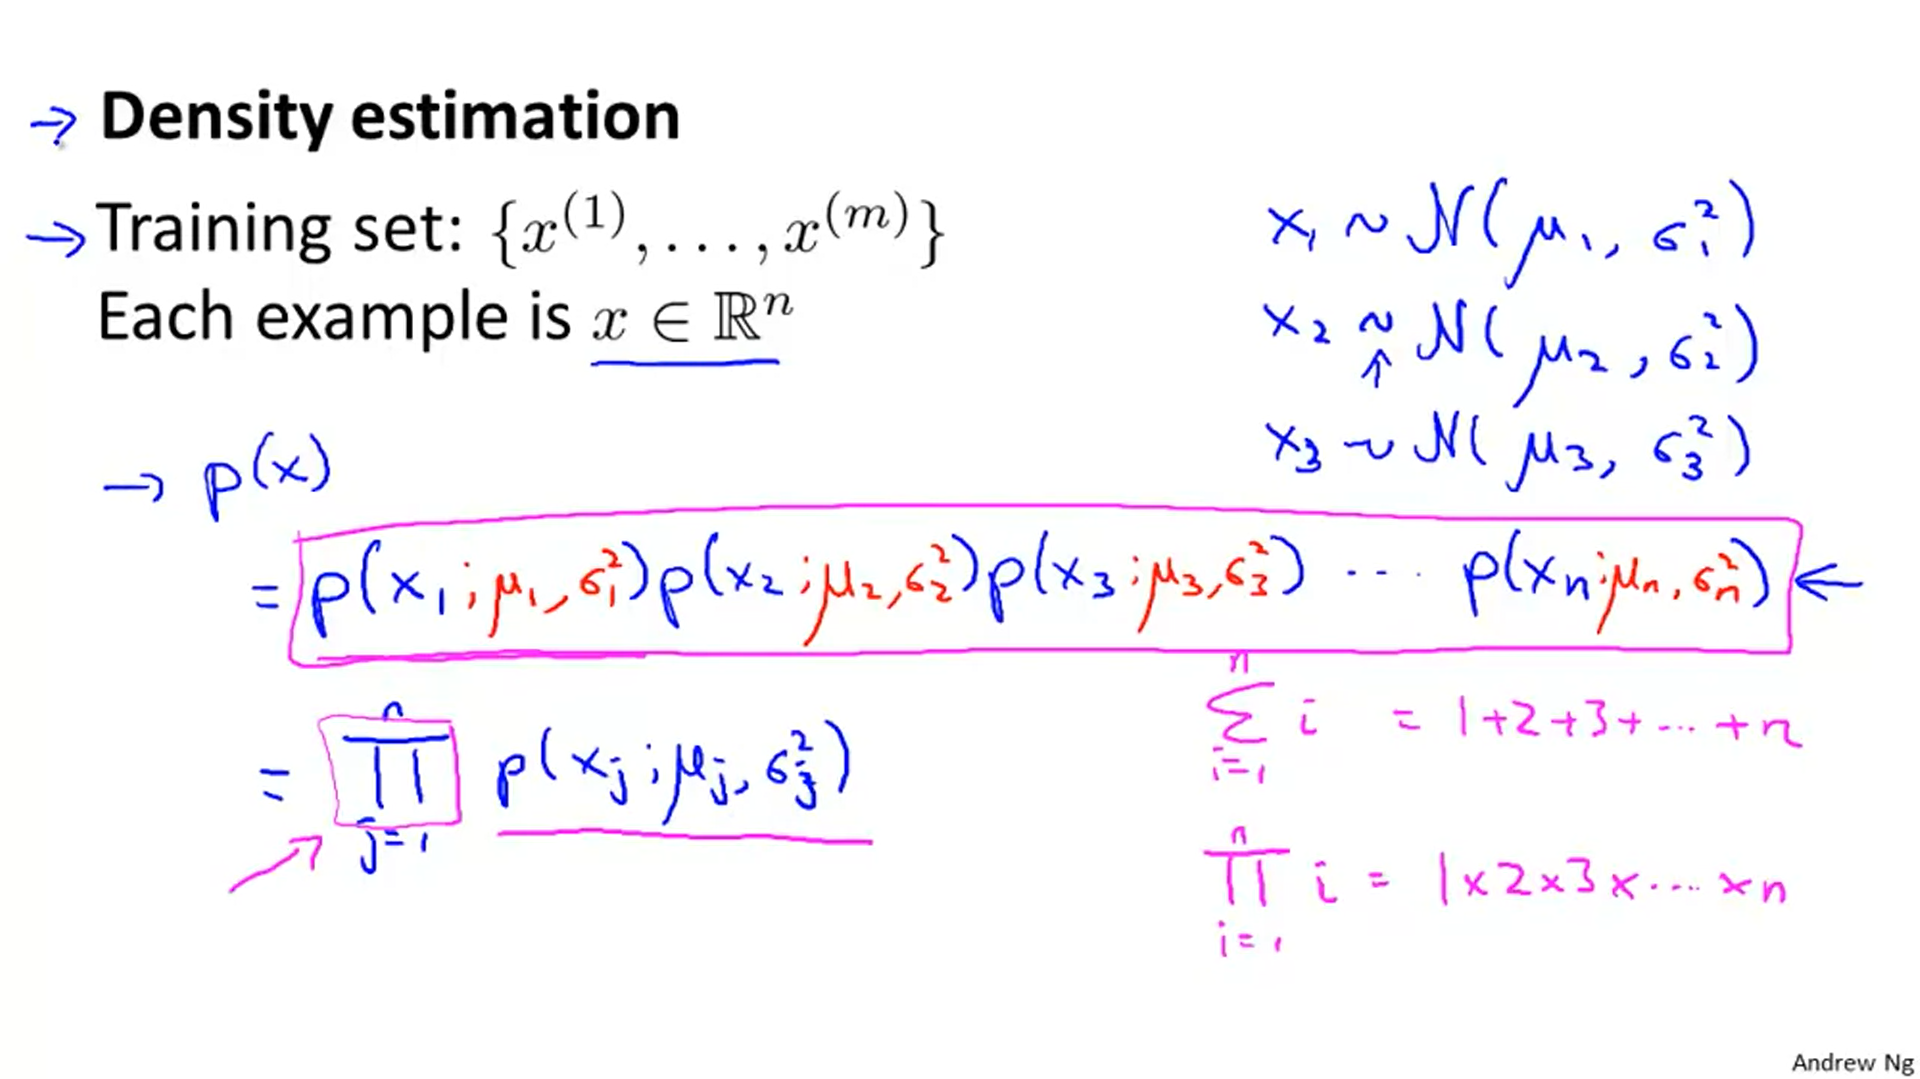 → Density estimation
→ Training set: {x^(1), ..., x^(m)}
Each example is x ∈ ℝ^n
x₁ ~ N(μ₁, σ₁²)
x₂ ~ N(μ₂, σ₂²)
↑
x₃ ~ N(μ₃, σ₃²)
→ p(x)
= p(x₁; μ₁, σ₁²) p(x₂; μ₂, σ₂²) p(x₃; μ₃, σ₃²) ··· p(xₙ; μₙ, σₙ²) ←
= ∏_{j=1}^{n} p(x_j; μ_j, σ_j²)
∑_{i=1}^{n} i = 1+2+3+···+n
∏_{i=1}^{n} i = 1×2×3×···×n
Andrew Ng